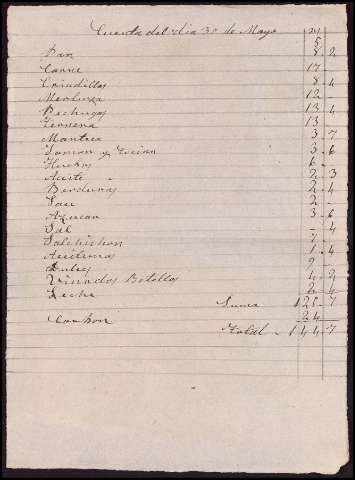 Cuenta del dia 30 de Mayo
Pan 8. 2
Carne 17
Criadillas 8. 4
Merluza 12
Pechugas 13. 4
Ternera 13
Manteca 3. 7
Jamon y Tocino 3. 6
Huebos 6
Aceite 2. 3
Berduras 2. 4
2
Azucar 3. 6
Sal - 4
Salchichon 7
Aceitunas 1. 4
Dulces 9
Vino dos Botellas 4. 2
Leche 2. 4
Suma 120. 7
Carbon 24
Total - 144 7